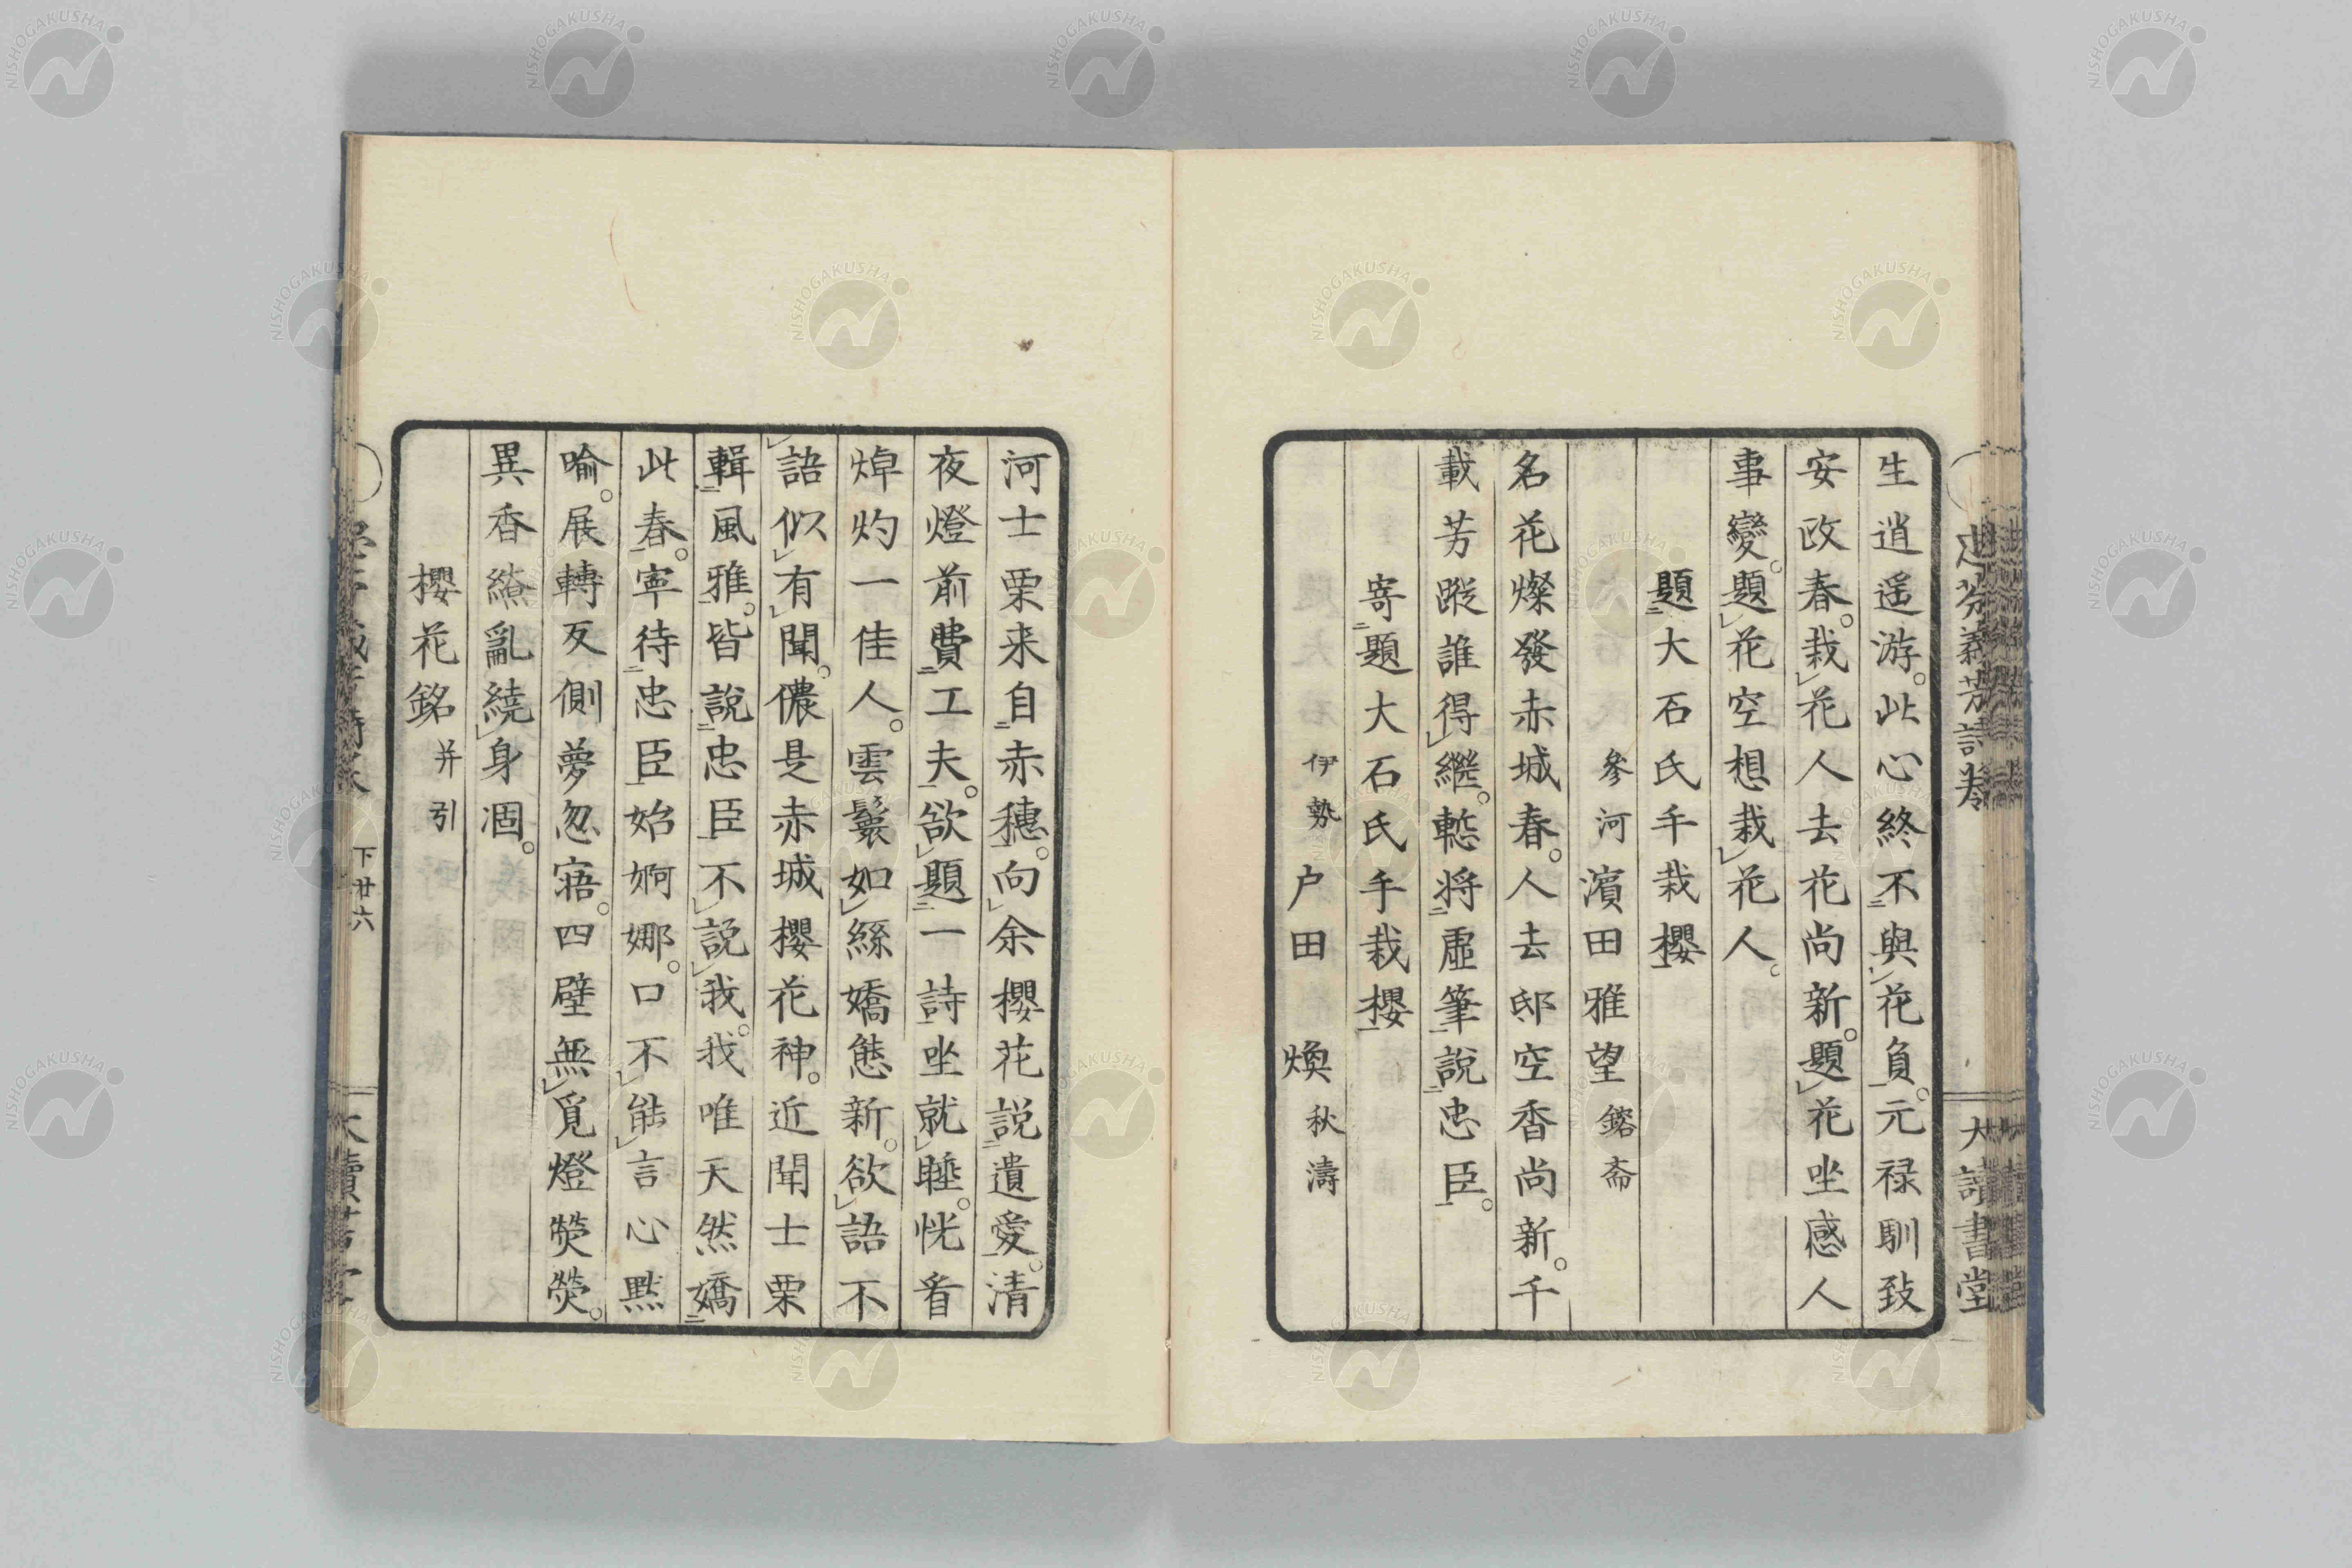 生逍遥游。此心終不與花負。元禄馴致
安政春。栽花人去花尚新。題花坐感人
事變。題花空想栽花人。
題大石氏手栽櫻
參河 濱田雅望 鎔斎
名花燦發赤城春。人去邸空香尚新。千
載芳蹤誰得繼。慙将虛筆說忠臣。
寄題大石氏手栽櫻
伊勢 戸田 煥 秋濤
河士栗来自赤穗。向余櫻花說遺愛。清
夜燈前費工夫。欲題一詩坐就睡。恍看
焯灼一佳人。雲鬟如絲嬌態新。欲語不
語似有聞。儂是赤城櫻花神。近聞士栗
輯風雅。皆說忠臣不說我。我唯天然嬌
此春。寧待忠臣始婀娜。口不能言心黙
喩。展轉反側夢忽寤。四壁無覓燈熒熒。
異香繚亂繞身涸。
櫻花銘 并引
下廿六
大讀書堂
NISHOGAKUSHA